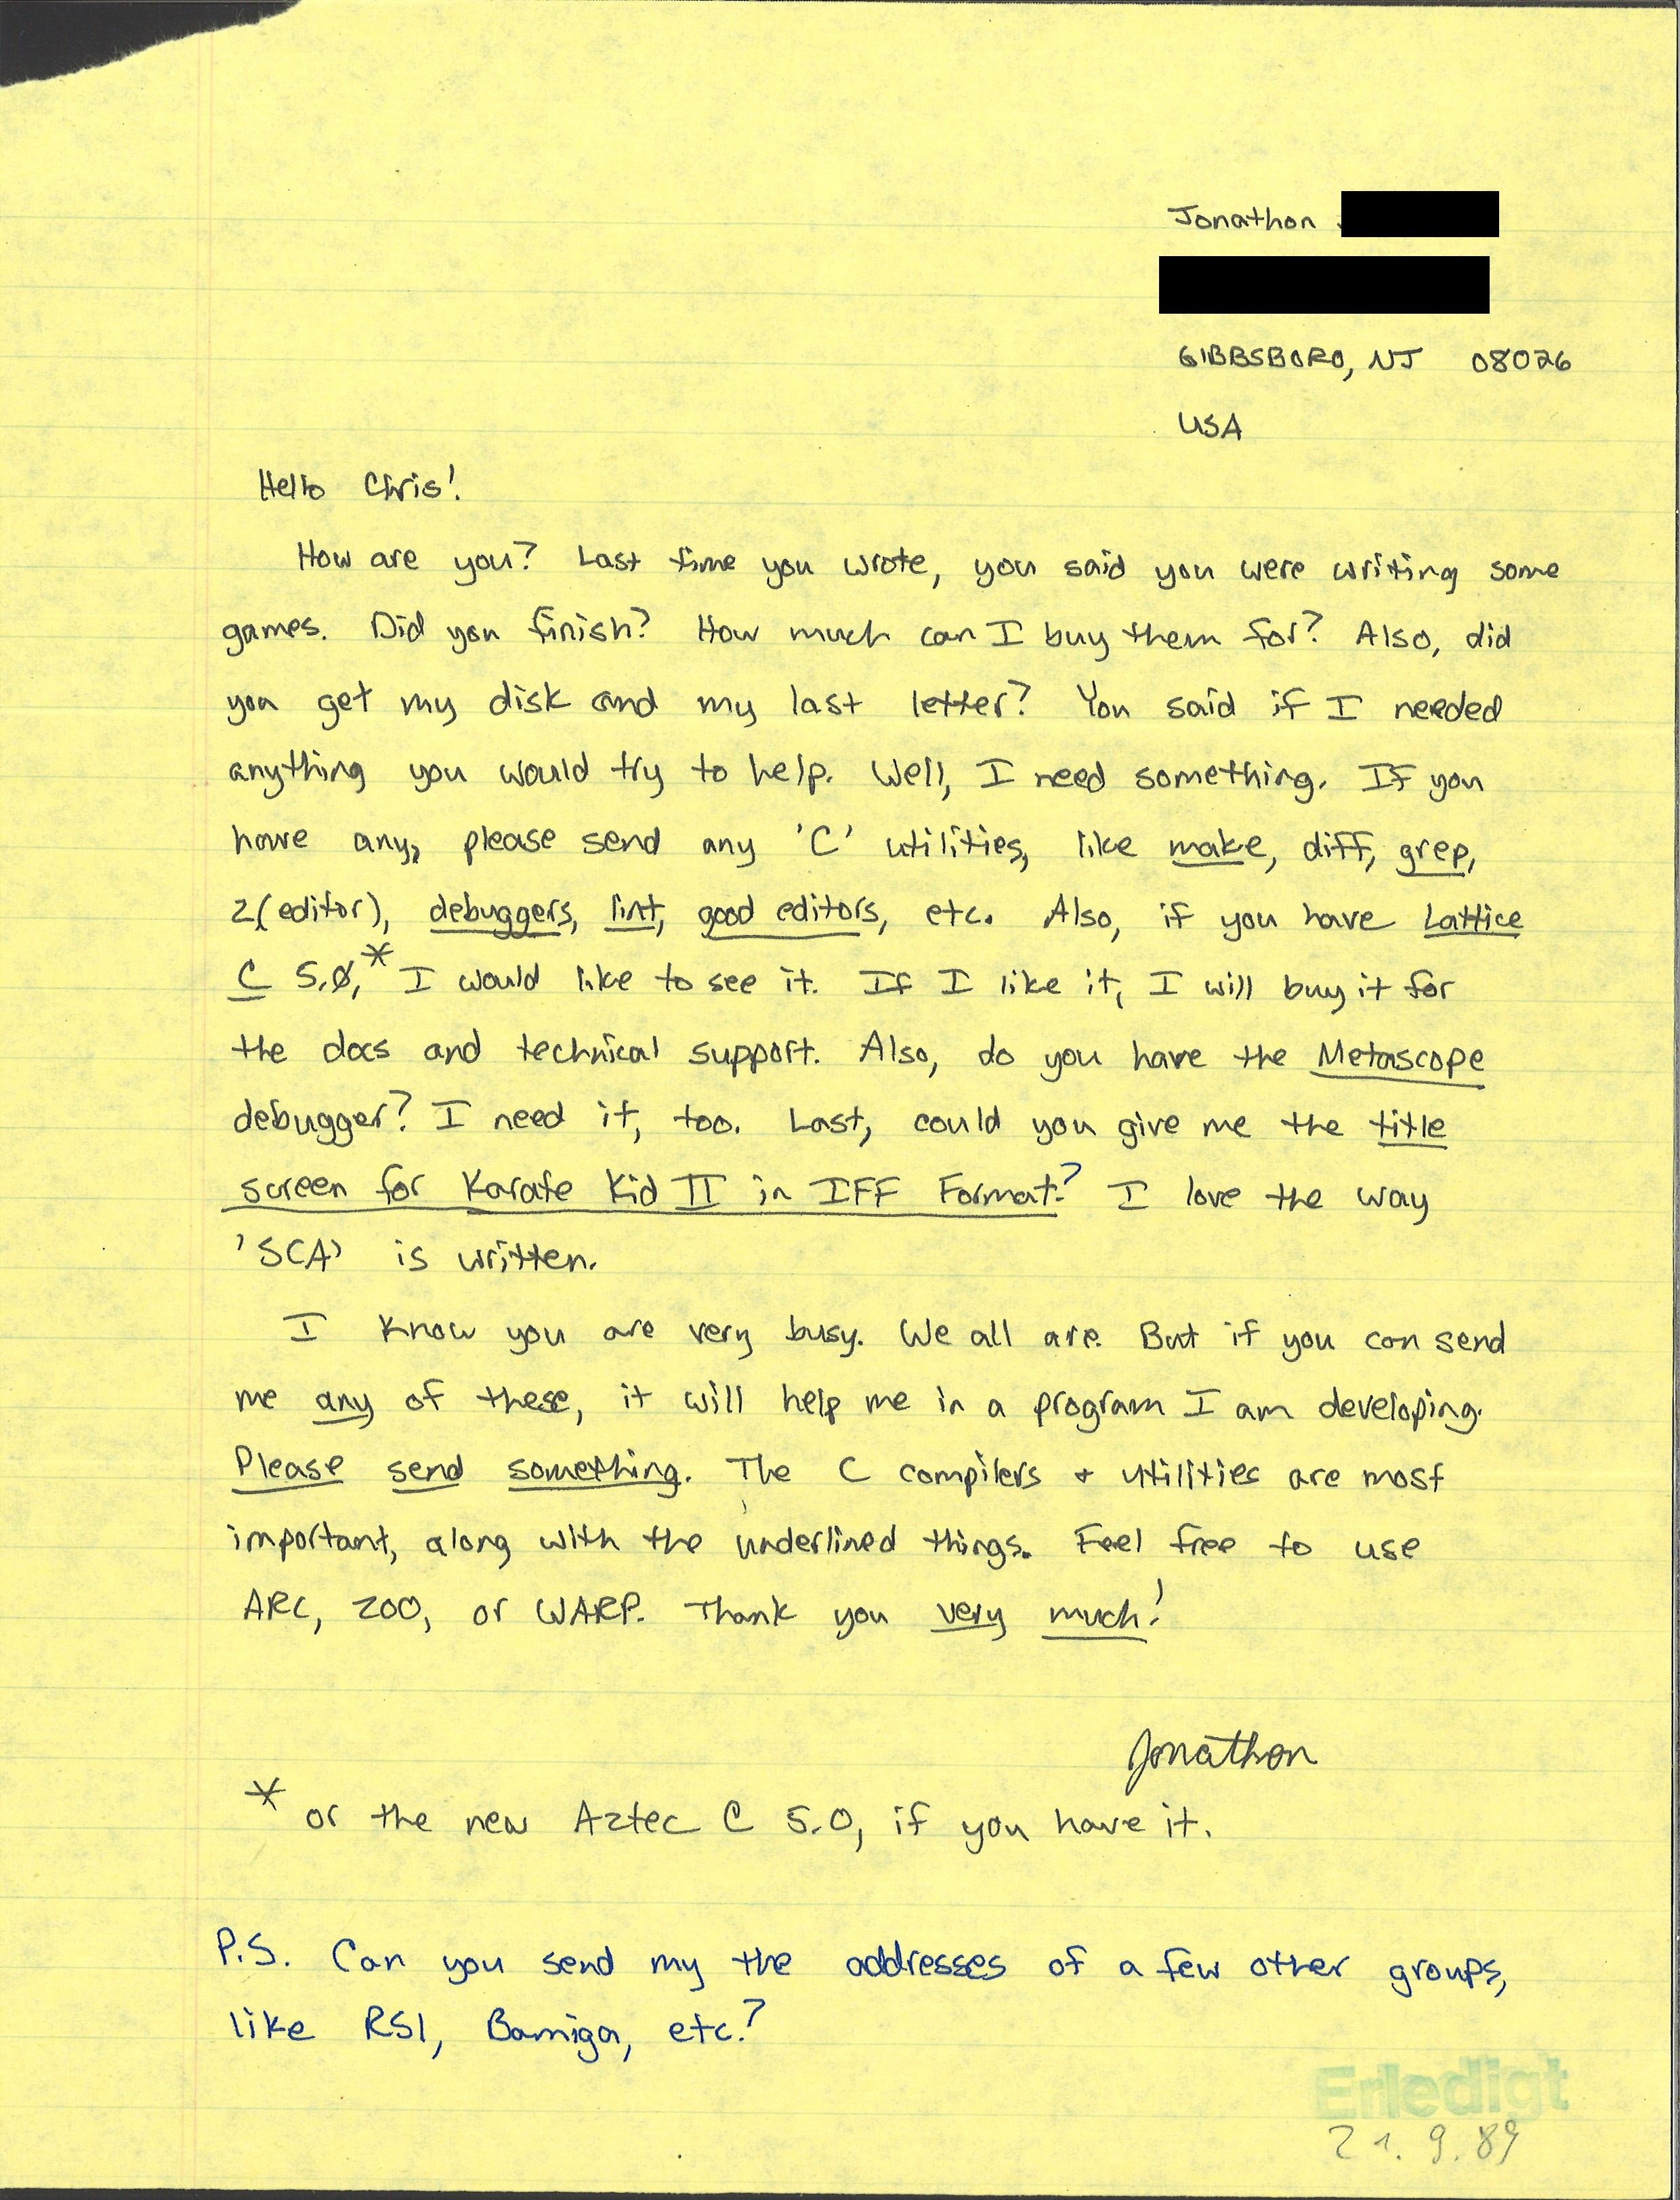 Jonathon
GIBBSBORO, NJ 08026
USA
Hello Chris!
How are you? Last time you wrote, you said you were writing some
games. Did you finish? How much can I buy them for? Also, did
you get my disk and my last letter? You said if I needed
anything you would try to help. Well, I need something. If you
have any, please send any 'C' utilities, like make, diff, grep,
z(editor), debuggers, lint, good editors, etc. Also, if you have Lattice
C 5.0,* I would like to see it. If I like it, I will buy it for
the docs and technical support. Also, do you have the Metascope
debugger? I need it, too. Last, could you give me the title
screen for Karate Kid II in IFF Format? I love the way
'SCA' is written.
I know you are very busy. We all are. But if you can send
me any of these, it will help me in a program I am developing.
Please send something. The C compilers + utilities are most
important, along with the underlined things. Feel free to use
ARC, ZOO, or WARP. Thank you very much!
Jonathon
* or the new Aztec C 5.0, if you have it.
P.S. Can you send my the addresses of a few other groups,
like RSI, Bamiga, etc.?
Erledigt
21.9.89